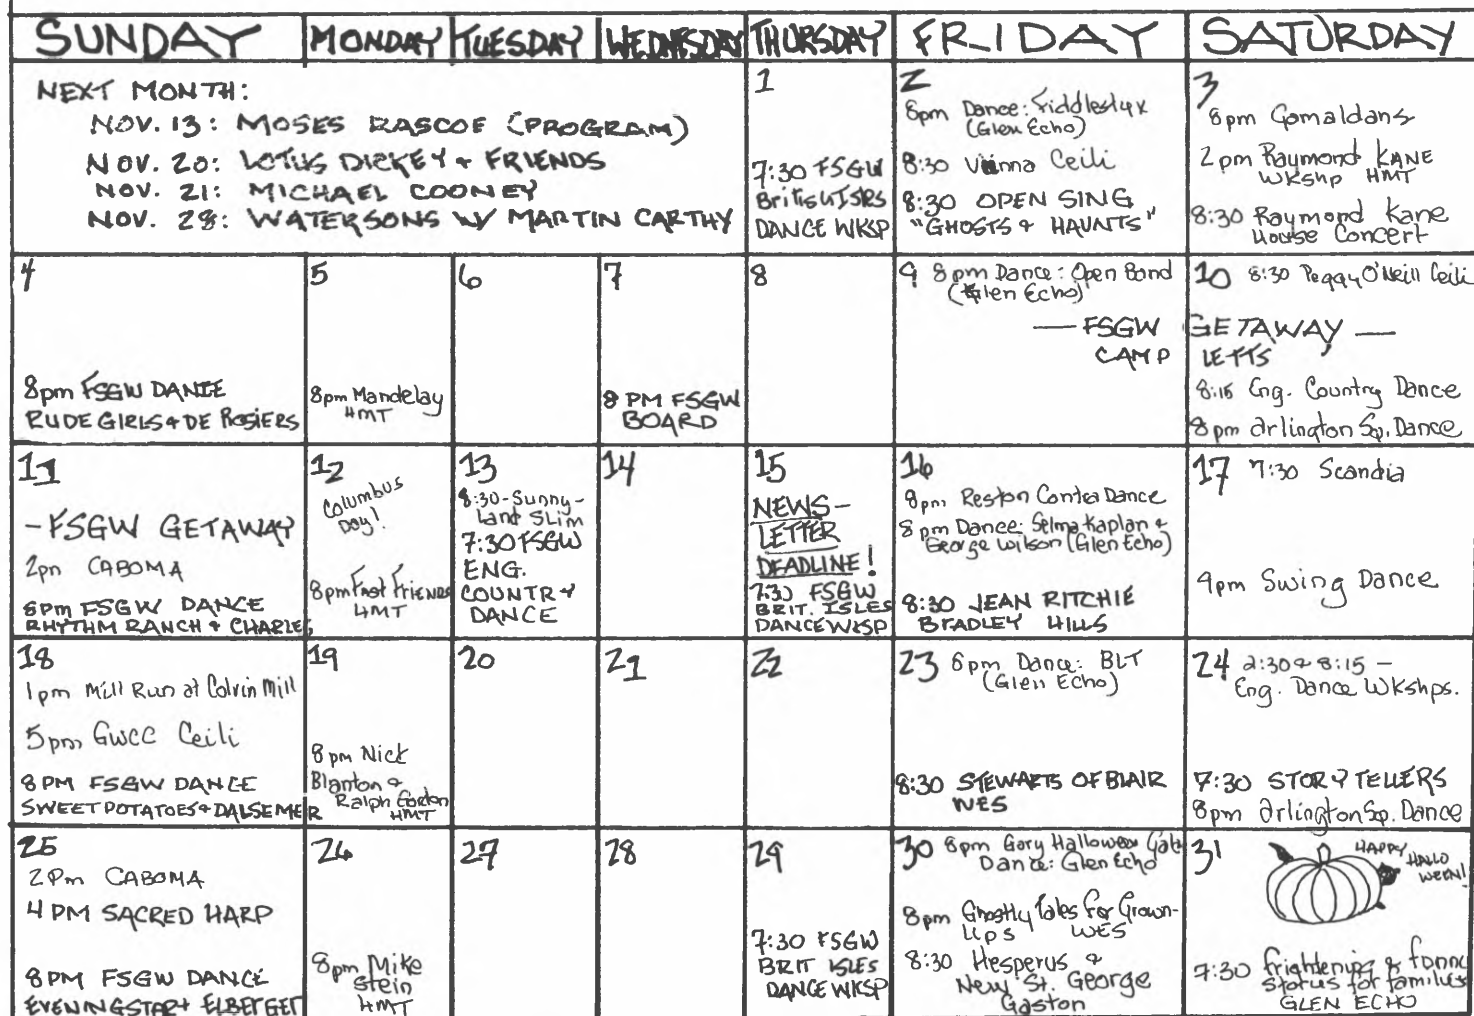 SUNDAY MONDAY TUESDAY WEDNESDAY THURSDAY FRIDAY SATURDAY
NEXT MONTH:
NOV. 13: MOSES RASCOE (PROGRAM)
NOV. 20: LOTUS DICKEY & FRIENDS
NOV. 21: MICHAEL COONEY
NOV. 28: WATERSONS W/ MARTIN CARTHY
1
7:30 FSGW
British ISLES
DANCE WKSP
2
8pm Dance: Fiddlestyx
(Glen Echo)
8:30 Vienna Ceili
8:30 OPEN SING
"GHOSTS & HAUNTS"
3
8pm Gamaldans
2pm Raymond KANE
WKShp HMT
8:30 Raymond Kane
House Concert
4
8pm FSGW DANCE
RUDE GIRLS & DE ROSIERS
5
8pm Mandelay
HMT
6
7
8 PM FSGW
BOARD
8
9 8pm Dance: Open Band
(Glen Echo)
— FSGW GETAWAY —
CAMP LETTS
10 8:30 Peggy O'Neill Ceili
8:15 Eng. Country Dance
8pm Arlington Sq. Dance
11
- FSGW GETAWAY
2pm CABOMA
8pm FSGW DANCE
RHYTHM RANCH & CHARLES
12
Columbus
Day!
8pm Fast Friends
HMT
13
8:30-Sunny-
land SLim
7:30 FSGW
ENG.
COUNTRY
DANCE
14
15
NEWS-
LETTER
DEADLINE!
7:30 FSGW
BRIT. ISLES
DANCE WKSP
16
8pm Reston Contra Dance
8pm Dance: Selma Kaplan &
George Wilson (Glen Echo)
8:30 JEAN RITCHIE
BRADLEY HILLS
17 7:30 Scandia
9pm Swing Dance
18
1pm Mill Run at Colvin Mill
5pm GWCC Ceili
8PM FSGW DANCE
SWEET POTATOES & DALSEMER
19
8pm Nick
Blanton &
Ralph Gordon
HMT
20
21
22
23 8pm Dance: BLT
(Glen Echo)
8:30 STEWARTS OF BLAIR
WES
24 2:30 & 8:15 -
Eng. Dance Wkshps.
7:30 STORYTELLERS
8pm Arlington Sq. Dance
25
2Pm CABOMA
4 PM SACRED HARP
8PM FSGW DANCE
EVENING STAR &
26
8pm Mike
Stein
HMT
27
28
29
7:30 FSGW
BRIT ISLES
DANCE WKSP
30 8pm Gary Halloween Gala
Dance: Glen Echo
8pm Ghostly Tales for Grown-
Ups WES
8:30 Hesperus &
New St. George
Gaston
31
HAPPY
HALLO
WEEN!
7:30 frightening & funny
stories for families
GLEN ECHO